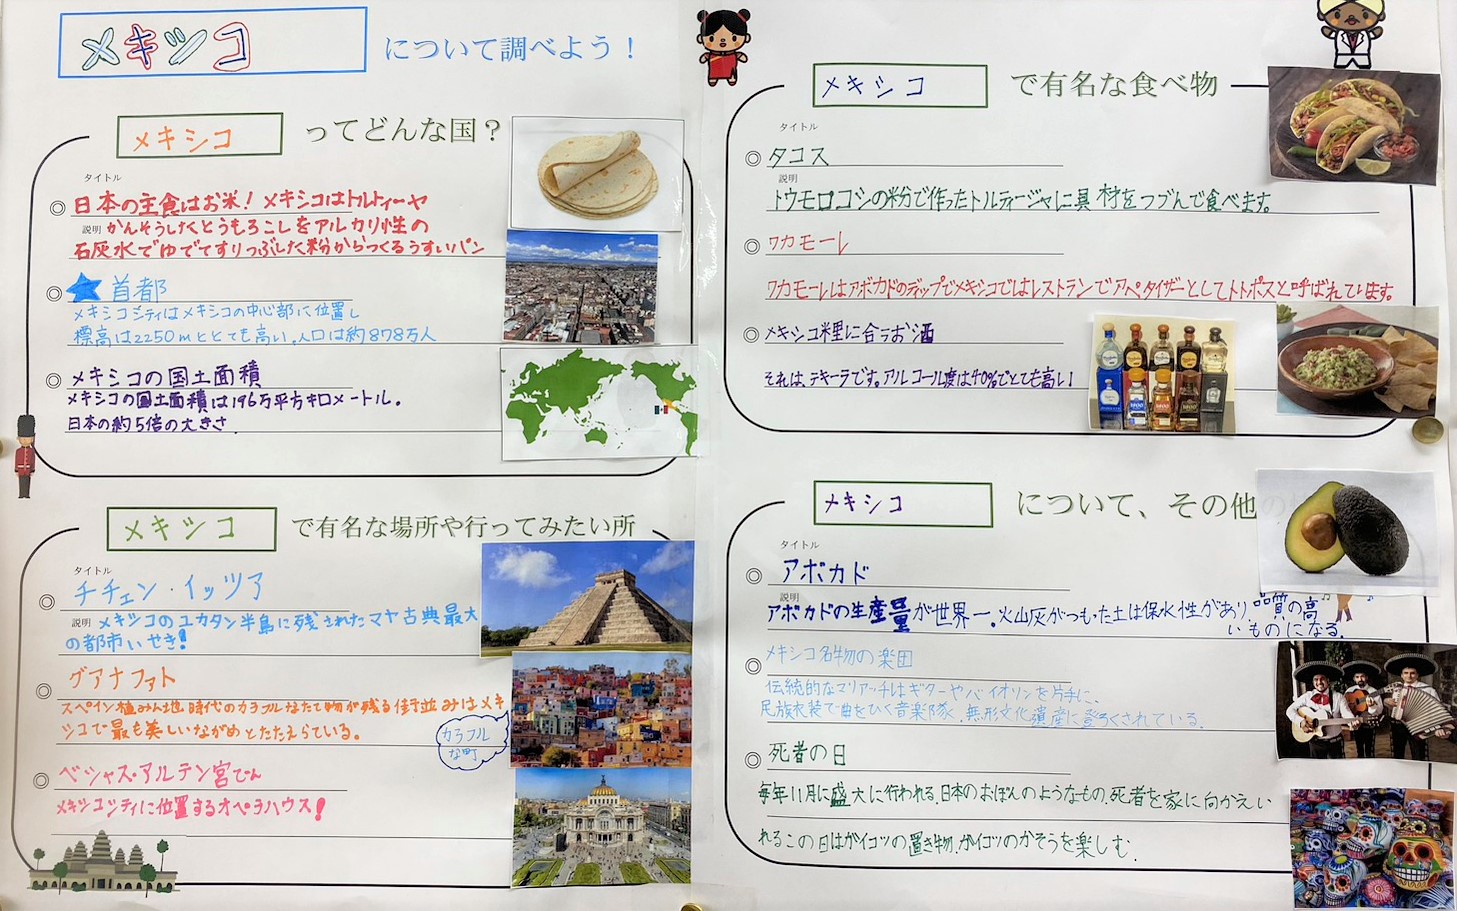 メキシコ について調べよう！
メキシコ ってどんな国？
タイトル
◎ 日本の主食はお米！メキシコはトルティーヤ
説明 かんそうしたとうもろこしをアルカリ性の
石灰水でゆでてすりつぶした粉からつくるうすいパン
◎ 首都
メキシコシティはメキシコの中心部に位置し
標高は2250mととても高い。人口は約878万人
◎ メキシコの国土面積
メキシコの国土面積は196万平方キロメートル。
日本の約5倍の大きさ
メキシコ で有名な場所や行ってみたい所
タイトル
◎ チチェン・イッツア
説明 メキシコのユカタン半島に残されたマヤ古典最大
の都市いせき！
◎ グアナファト
スペイン植みん地時代のカラフルなたて物が残る街並みはメキ
シコで最も美しいながめとたたえらている。
カラフル
な町
◎ ベジャス・アルテン宮でん
メキシコシティに位置するオペラハウス！
メキシコ で有名な食べ物
タイトル
◎ タコス
説明
トウモロコシの粉で作ったトルティージャに具材をつつんで食べます。
◎ ワカモーレ
ワカモーレはアボカドのディップでメキシコではレストランでアペタイザーとしてトトポスと呼ばれています。
◎ メキシコ料理に合うお酒
それは、テキーラです。アルコール度は40%でとても高い
メキシコ について、その他の
タイトル
◎ アボカド
説明
アボカドの生産量が世界一。火山灰がつもった土は保水性があり品質の高
いものになる。
◎ メキシコ名物の楽団
伝統的なマリアッチはギターやバイオリンを片手に、
民族衣装で曲をひく音楽隊。無形文化遺産に登ろくされている。
◎ 死者の日
毎年11月に盛大に行われる。日本のおぼんのようなもの。死者を家に向かえい
れるこの日はガイコツの置き物、ガイコツのかそうを楽しむ。